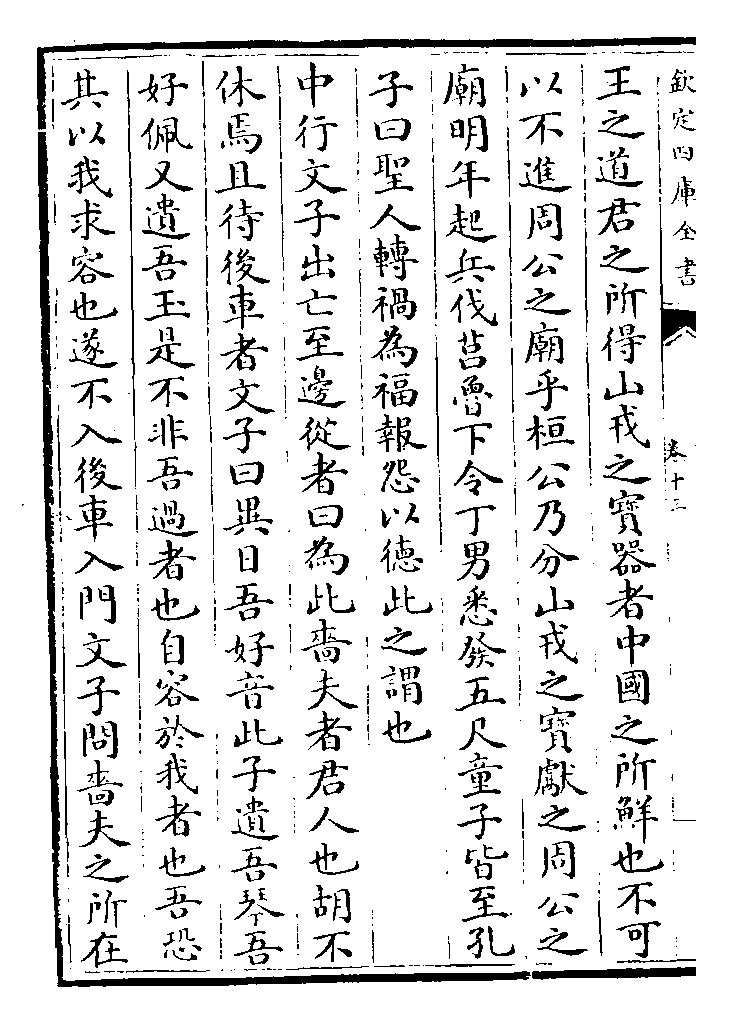 欽定四庫全書
卷十三
王之道君之所得山戎之寶器者中國之所鮮也不可
以不進周公之廟乎桓公乃分山戎之寶獻之周公之
廟明年起兵伐莒魯下令丁男悉發五尺童子皆至孔
子曰聖人轉禍為福報怨以德此之謂也
中行文子出亡至邊從者曰為此嗇夫者君人也胡不
休焉且待後車者文子曰異日吾好音此子遺吾琴吾
好佩又遺吾玉是不非吾過者也自容於我者也吾恐
其以我求容也遂不入後車入門文子問嗇夫之所在